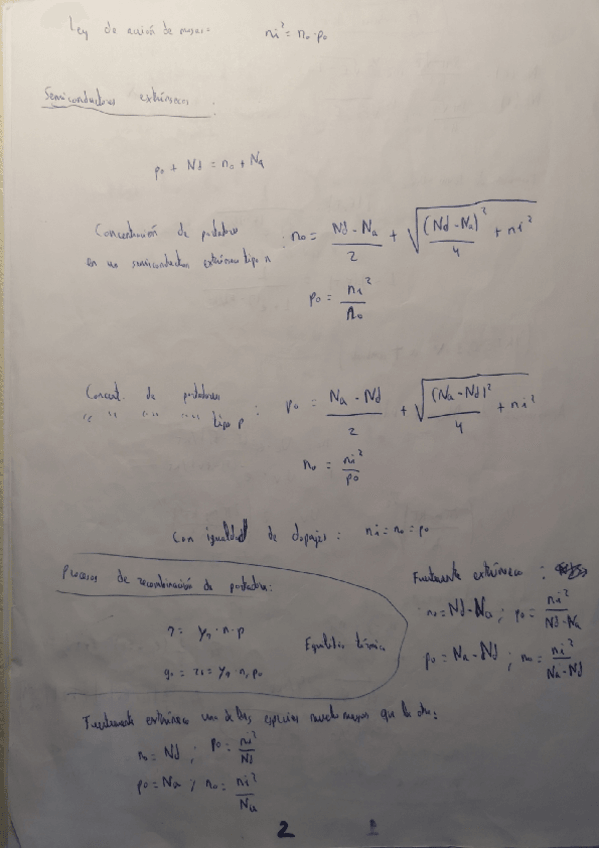 Ley de acción de masas: ni² = no·po
Semiconductores extrínsecos:
po + Nd = no + Na
Concentración de portadores
en un semiconductor extrínseco tipo n : no = (Nd - Na)/2 + √((Nd - Na)²/4 + ni²)
po = ni²/no
Concent. de portadores
“ “ “ “ tipo p : po = (Na - Nd)/2 + √((Na - Nd)²/4 + ni²)
no = ni²/po
Con igualdad de dopajes: ni = no = po
Procesos de recombinación de portadores:
r = γr · n · p
Equilibrio térmico
go = ro = γr · no po
Fuertemente extrínseco :
no = Nd - Na ; po = ni²/(Nd - Na)
po = Na - Nd ; no = ni²/(Na - Nd)
Fuertemente extrínseco una de las especies mucho mayor que la otra:
no = Nd ; po = ni²/Nd
po = Na ; no = ni²/Na
2